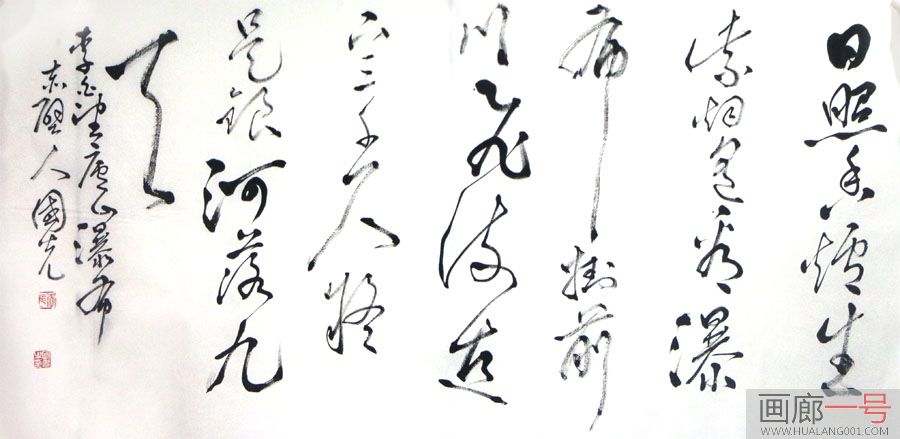 日照香爐生
紫烟遥看瀑
布掛前
川飛流直
下三千尺疑
是銀河落九
天
李白望庐山瀑布
赤壁人國
画廊一号
WWW.HUALANG001.COM